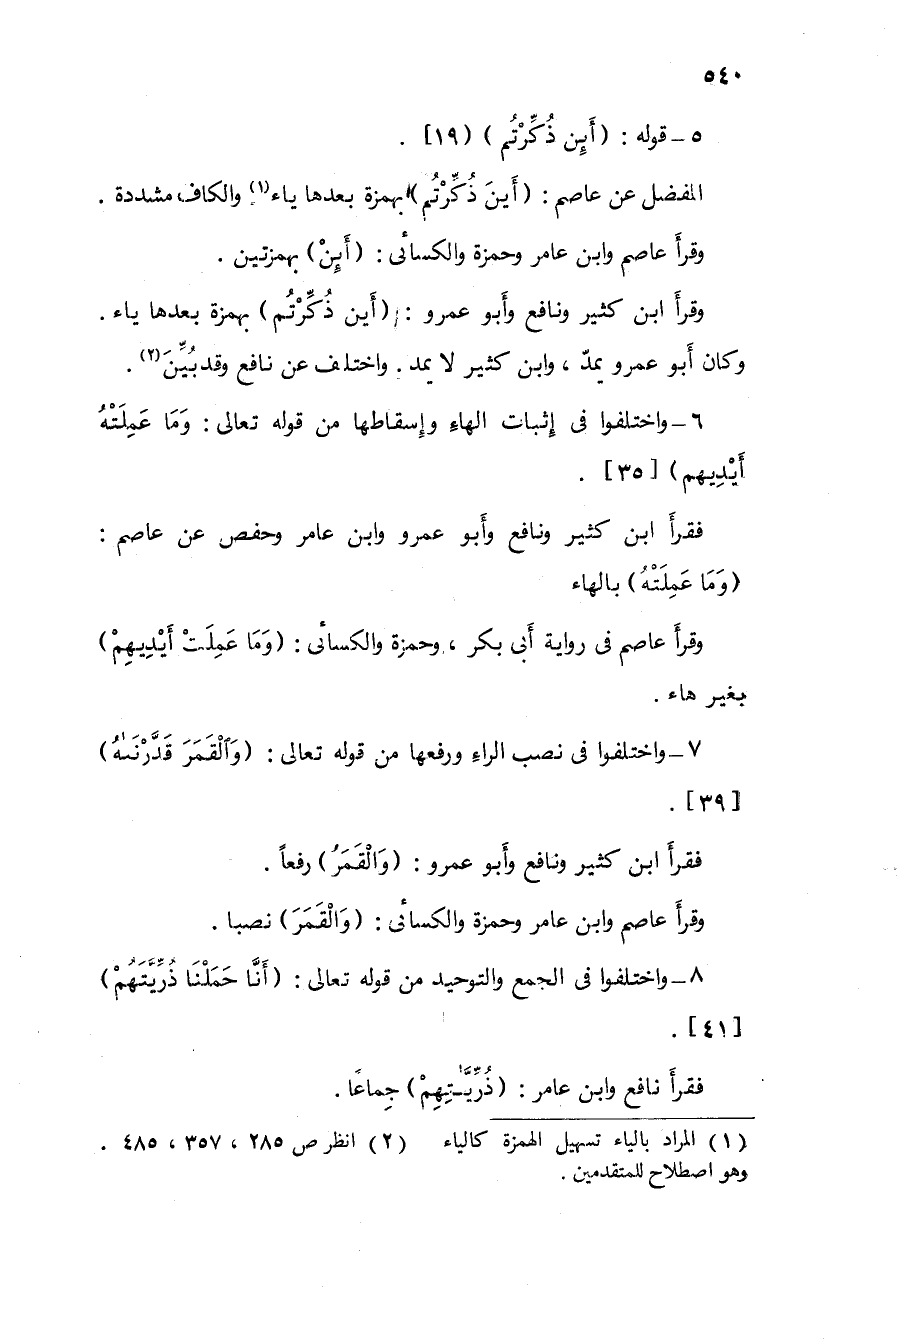 ٥٤٠
٥ ـ قوله : ( أَئِن ذُكِّرْتُم ) (١٩] .
المفضل عن عاصم : ( أَينَ ذُكِّرْتُم ) بهمزة بعدها ياء(١) والكاف مشددة .
وقرأَ عاصم وابن عامر وحمزة والكسائى : ( أَئِنْ ) بهمزتين .
وقرأَ ابن كثير ونافع وأَبو عمرو : ( أَين ذُكِّرْتُم ) بهمزة بعدها ياء .
وكان أَبو عمرو يمدّ ، وابن كثير لا يمد . واختلف عن نافع وقد بُيِّنَ(٢) .
٦ ـ واختلفوا فى إثبات الهاء وإسقاطها من قوله تعالى : وَمَا عَمِلَتْهُ
أَيْدِيهم ) [٣٥] .
فقرأَ ابن كثير ونافع وأَبو عمرو وابن عامر وحفص عن عاصم :
( وَمَا عَمِلَتْهُ ) بالهاء
وقرأَ عاصم فى رواية أَبى بكر ، وحمزة والكسائى : ( وَمَا عَمِلَتْ أَيْدِيهِمْ )
بغير هاء .
٧ ـ واختلفوا فى نصب الراء ورفعها من قوله تعالى : ( وَٱلْقَمَرَ قَدَّرْنَـٰهُ )
[٣٩] .
فقرأَ ابن كثير ونافع وأَبو عمرو : ( وَالْقَمَرُ ) رفعاً .
وقرأَ عاصم وابن عامر وحمزة والكسائى : ( وَالْقَمَرَ ) نصبا .
٨ ـ واختلفوا فى الجمع والتوحيد من قوله تعالى : ( أَنَّا حَمَلْنَا ذُرِّيَّتَهُمْ )
[٤١] .
فقرأَ نافع وابن عامر : ( ذُرِّيَّـٰتِهِمْ ) جِماعًا .
(١) المراد بالياء تسهيل الهمزة كالياء (٢) انظر ص ٢٨٥ ، ٣٥٧ ، ٤٨٥ .
وهو اصطلاح للمتقدمين .